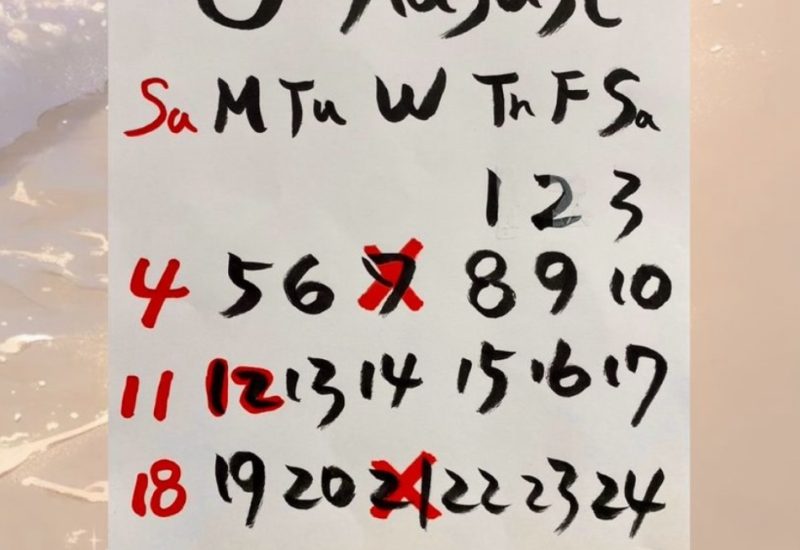 8 August
Su M Tu W Th F Sa
1 2 3
4 5 6 7 8 9 10
11 12 13 14 15 16 17
18 19 20 21 22 23 24